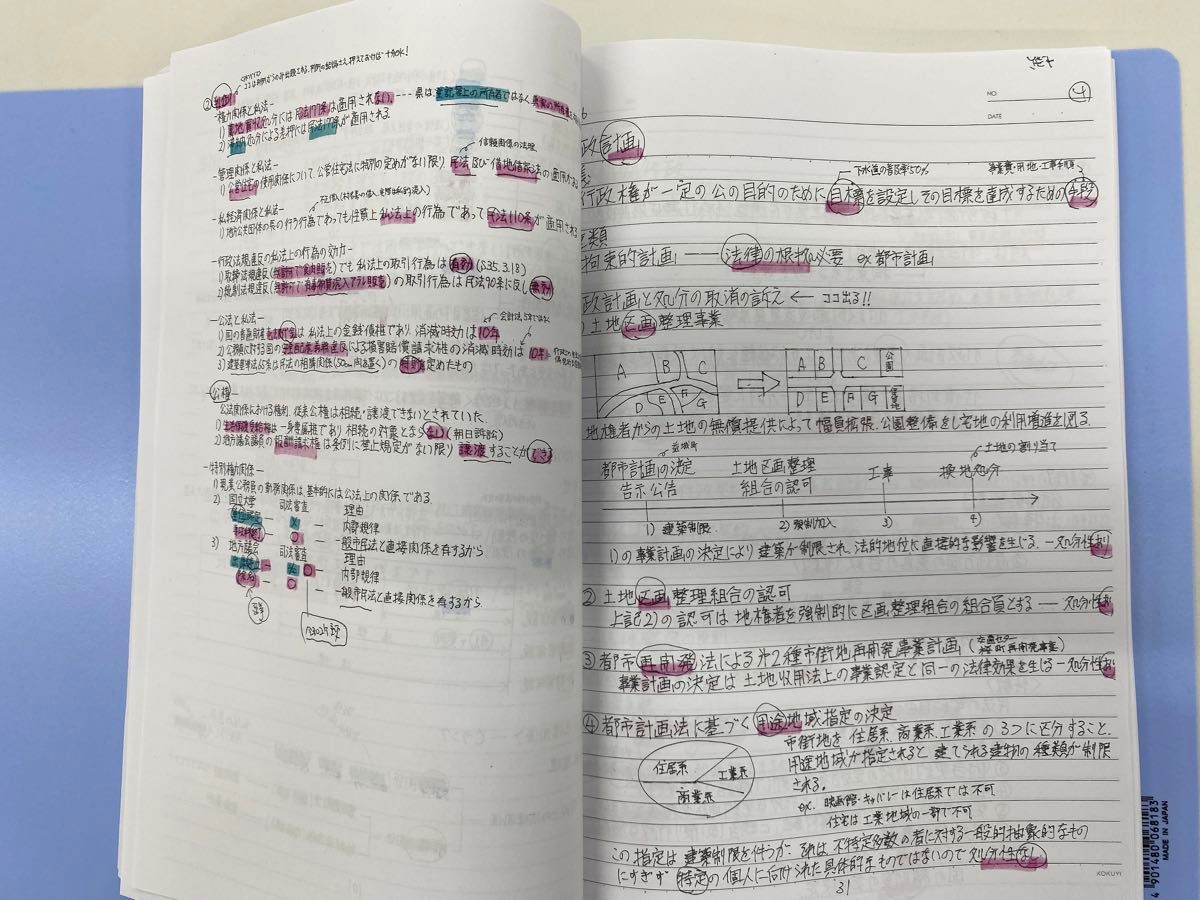 ココは判例からのみ出題される。判例の結論さえ押えておけば十分OK!
② 判例
-権力関係と私法-
1) 農地買収処分には民法177条は適用されない。--- 県は、登記簿上の所有者ではなく真実の所有者
2) 滞納処分による差押には民法177条が適用される
-管理関係と私法-
信頼関係の法理
1) 公営住宅の使用関係について、公営住宅法に特別の定めがない限り民法及び借地借家法の適用がある
-私経済関係と私法-
1) 地方公共団体の長の行う行為であっても性質上私法上の行為であって民法110条が適用される
-行政法規違反の私法上の行為の効力-
1) 取締法規違反(無許可で食肉販売)でも私法上の取引行為は有効(S35.3.18)
2) 統制法規違反の取引行為は民法90条に反し無効
-公法と私法-
会計法、5年ではなく
1) 国の普通財産売払代金は私法上の金銭債権であり、消滅時効は10年
2) 公務員に対する国の安全配慮義務違反による損害賠償請求権の消滅時効は10年
3) 建築基準法65条は民法の相隣関係(50cm間を置く)の特則を定めたもの
-公権-
公法関係における権利、従来公権は相続・譲渡できないとされていた。
1) 生活保護受給権は一身専属権であり相続の対象とならない(朝日訴訟)
2) 地方議会議員の報酬請求権は条例に禁止規定がない限り譲渡することができる
-特別権力関係-
1) 現業公務員の勤務関係は、基本的には公法上の関係である
2) 国立大学 司法審査 理由
単位認定 - × - 内部規律
専攻科修了 - ○ - 一般市民法と直接関係を有するから
3) 地方議会 司法審査 理由
出席停止 - × - 内部規律
除名 - ○ - 一般市民法と直接関係を有するから
NO. 4
DATE
政計画
下水道の普及率50% 事業費・用地・工事手順
行政権が一定の公の目的のために目標を設定しその目標を達成するための手段
種類
拘束的計画 --- 法律の根拠必要 ex 都市計画
政計画と処分の取消の訴え ← ココ出る!!
土地区画整理事業
A B C D E F G
A B C 公園 D E F G 保留地
地権者からの土地の無償提供によって幅員拡張、公園整備をし宅地の利用増進を図る。
土地の割り当て
都市計画の決定 土地区画整理 工事 換地処分
告示公告 組合の認可
1) 建築制限 2) 強制加入 3) 4)
1) の事業計画の決定により建築が制限され、法的地位に直接的な影響を生じる。-処分性あり
② 土地区画整理組合の認可
上記2)の認可は地権者を強制的に区画整理組合の組合員とする --- 処分性あり
③ 都市再開発法による第2種市街地再開発事業計画
事業計画の決定は土地収用法上の事業認定と同一の法律効果を生じる -処分性あり
④ 都市計画法に基づく用途地域指定の決定
市街地を住居系、商業系、工業系の3つに区分すること。
用途地域が指定されると建てられる建物の種類が制限
される。
住居系 工業系 商業系
ex. 映画館・キャバレーは住居系では不可
住宅は工業地域の一部で不可
この指定は建築制限を伴うが、それは不特定多数の者に対する一般的抽象的なもの
にすぎず特定の個人に向けられた具体的なものではないので処分性なし
31
KOKUYO
4 901480 068183
MADE IN JAPAN